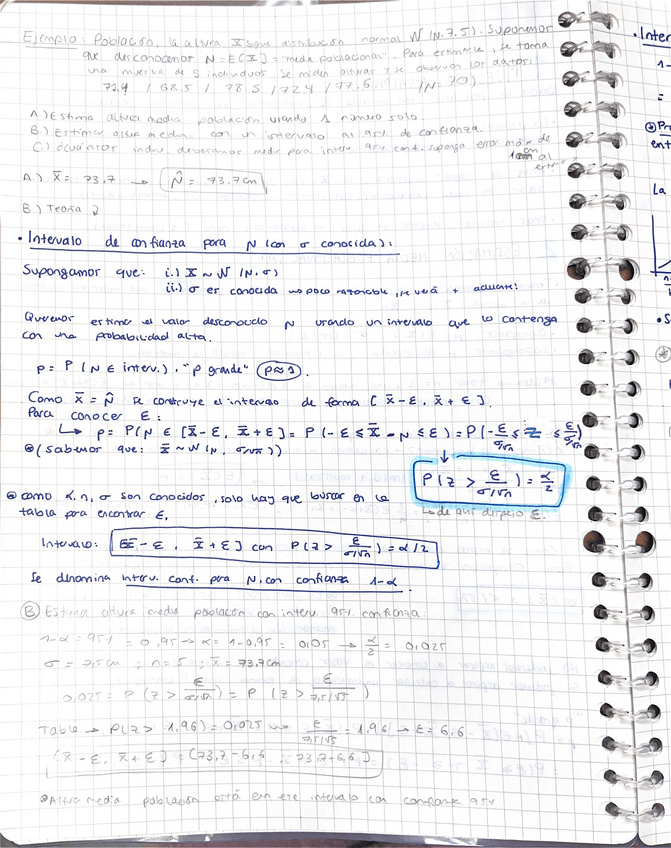 Ejemplo: Población, la altura X sigue distribución normal N(N, 7.5). Suponemos
que desconocemos N = E[X] = "media poblacional". Para estimarla, se toma
una muestra de 5 individuos. Se miden alturas y se observan los datos:
72,4 / 68,5 / 78,5 / 72,4 / 77,6. (N = 70)
A) Estima altura media población usando 1 número solo
B) Estimar altura media con un intervalo al 95% de confianza.
C) ¿Cuántos indiv. deberíamos medir para interv. 95% conf. suponga error máx de
1cm al
A.) x̄ = 73,7 → N̂ = 73.7cm
B) Teoría
• Intervalo de confianza para N (con σ conocida):
Supongamos que: i.) X ~ N (N, σ)
ii.) σ es conocida poco razonable, se verá + adelante!
Queremos estimar el valor desconocido N usando un intervalo que lo contenga
con una probabilidad alta.
p = P (N ∈ interv.). "p grande" (p≈1)
Como x̄ = N̂ se construye el intervalo de forma [x̄ - ε, x̄ + ε].
Para conocer ε:
↳ p = P(N ∈ [x̄-ε, x̄+ε] = P(-ε ≤ x̄ - N ≤ ε) = P(-ε/(σ/√n) ≤ Z ≤ ε/(σ/√n))
(sabemos que: x̄ ~ N (N, σ/√n))
P(Z > ε/(σ/√n)) = α/2
↳ de aquí despejo ε.
como α, n, σ son conocidos, solo hay que buscar en la
tabla para encontrar ε.
Intervalo: [x̄ - ε, x̄ + ε] con P(Z > ε/(σ/√n)) = α/2
Se denomina interv. conf. para N, con confianza 1-α.
(B) Estima altura media población con interv. 95% confianza:
1-α = 95% = 0,95 → α = 1-0,95 = 0,05 → α/2 = 0,025
σ = 7,5cm ; n = 5 ; x̄ = 73,7cm
0,025 = P (Z > ε/(σ/√n)) = P (Z > ε/(7,5/√5))
Tabla → P(Z > 1,96) = 0,025 → ε/(7,5/√5) = 1,96 → ε = 6,6
(x̄ - ε, x̄ + ε] = (73,7-6,6, 73,7+6,6]
Altura media población está en ese intervalo con confianza 95%
• Inter
1-
=
Pr
ent
La
• S